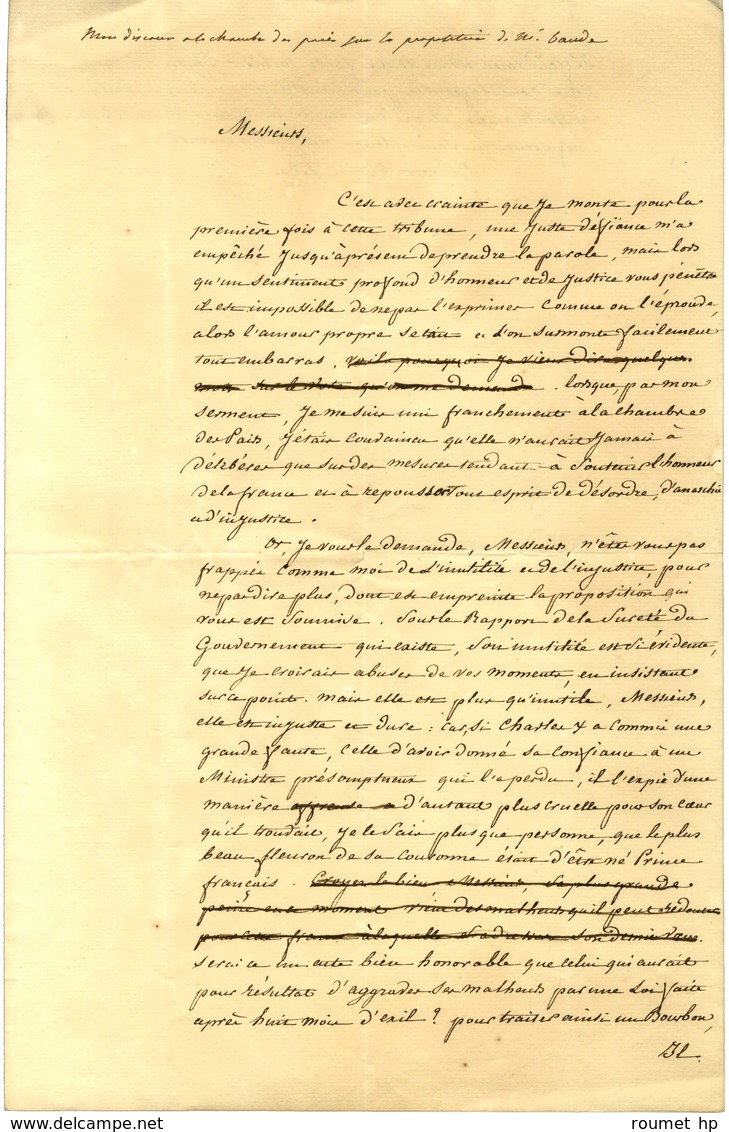 Mon discours à la chambre des pairs sur la proposition de Mr. baude
Messieurs,
C'est avec crainte que je monte pour la
première fois à cette tribune, une juste défiance m'a
empêché jusqu'à présent de prendre la parole, mais lors
qu'un sentiment profond d'honneur et de justice vous pénètre
il est impossible de ne pas l'exprimer comme on l'éprouve,
alors l'amour propre se tait et l'on surmonte facilement
tout embarras, voilà pourquoi je viens dire quelques
mots sur le vote qu'on me demande. lorsque, par mon
serment, je me suis uni franchement à la chambre
des Pairs, j'étais convaincu qu'elle n'aurait jamais à
délibérer que sur des mesures tendant à soutenir l'honneur
de la france et à repousser tout esprit de désordre, d'anarchie
et d'injustice.
Or, je vous le demande, Messieurs, n'êtes vous pas
frappés comme moi de l'inutilité et de l'injustice, pour
ne pas dire plus, dont est empreinte la proposition qui
vous est soumise. Sous le Rapport de la Sureté du
Gouvernement qui existe, son inutilité est si évidente,
que je croirais abuser de vos moments, en insistant
sur ce point. mais elle est plus qu'inutile, Messieurs,
elle est injuste et dure : car, si Charles X a commis une
grande faute, celle d'avoir donné sa confiance à un
Ministre présomptueux qui l'a perdu, il l'expie d'une
manière affreuse et d'autant plus cruelle pour son cœur
qu'il voudrait, je le sais plus que personne, que le plus
beau fleuron de sa couronne était d'être né Prince
français. Croyez le bien Messieurs, sa plus grande
peine en ce moment vient des malheurs qu'il peut redouter
pour cette france à laquelle s'adressera son dernier vœu.
serait ce un acte bien honorable que celui qui aurait
pour résultat d'aggraver ses malheurs par une Loi faite
après huit mois d'exil ? pour traiter ainsi un Bourbon,
Il.
roumet hp